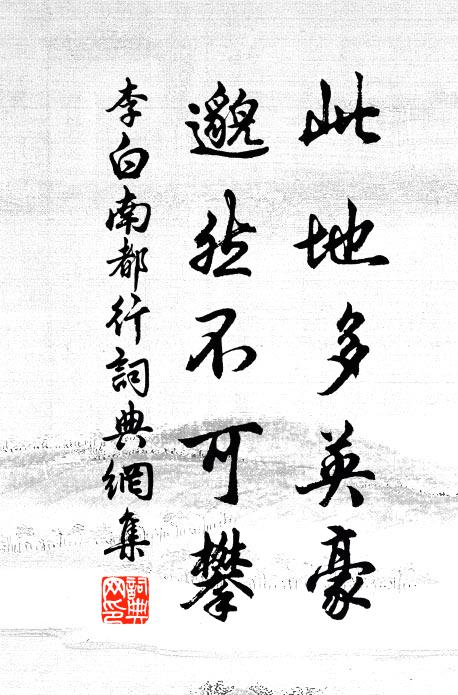 此地多英豪
邈然不可攀
李白南都行詞典網集